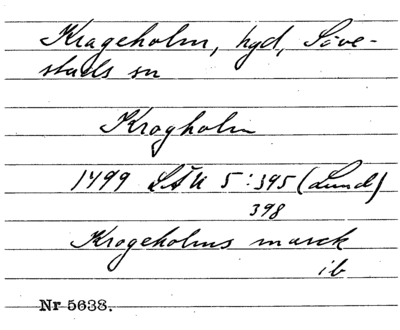 Krageholm, hgd, Söve-
stads sn
Krogholm
1499 LÄU 5:395 (Lund)
398
Krogeholms marck
ib
Nr 5638.